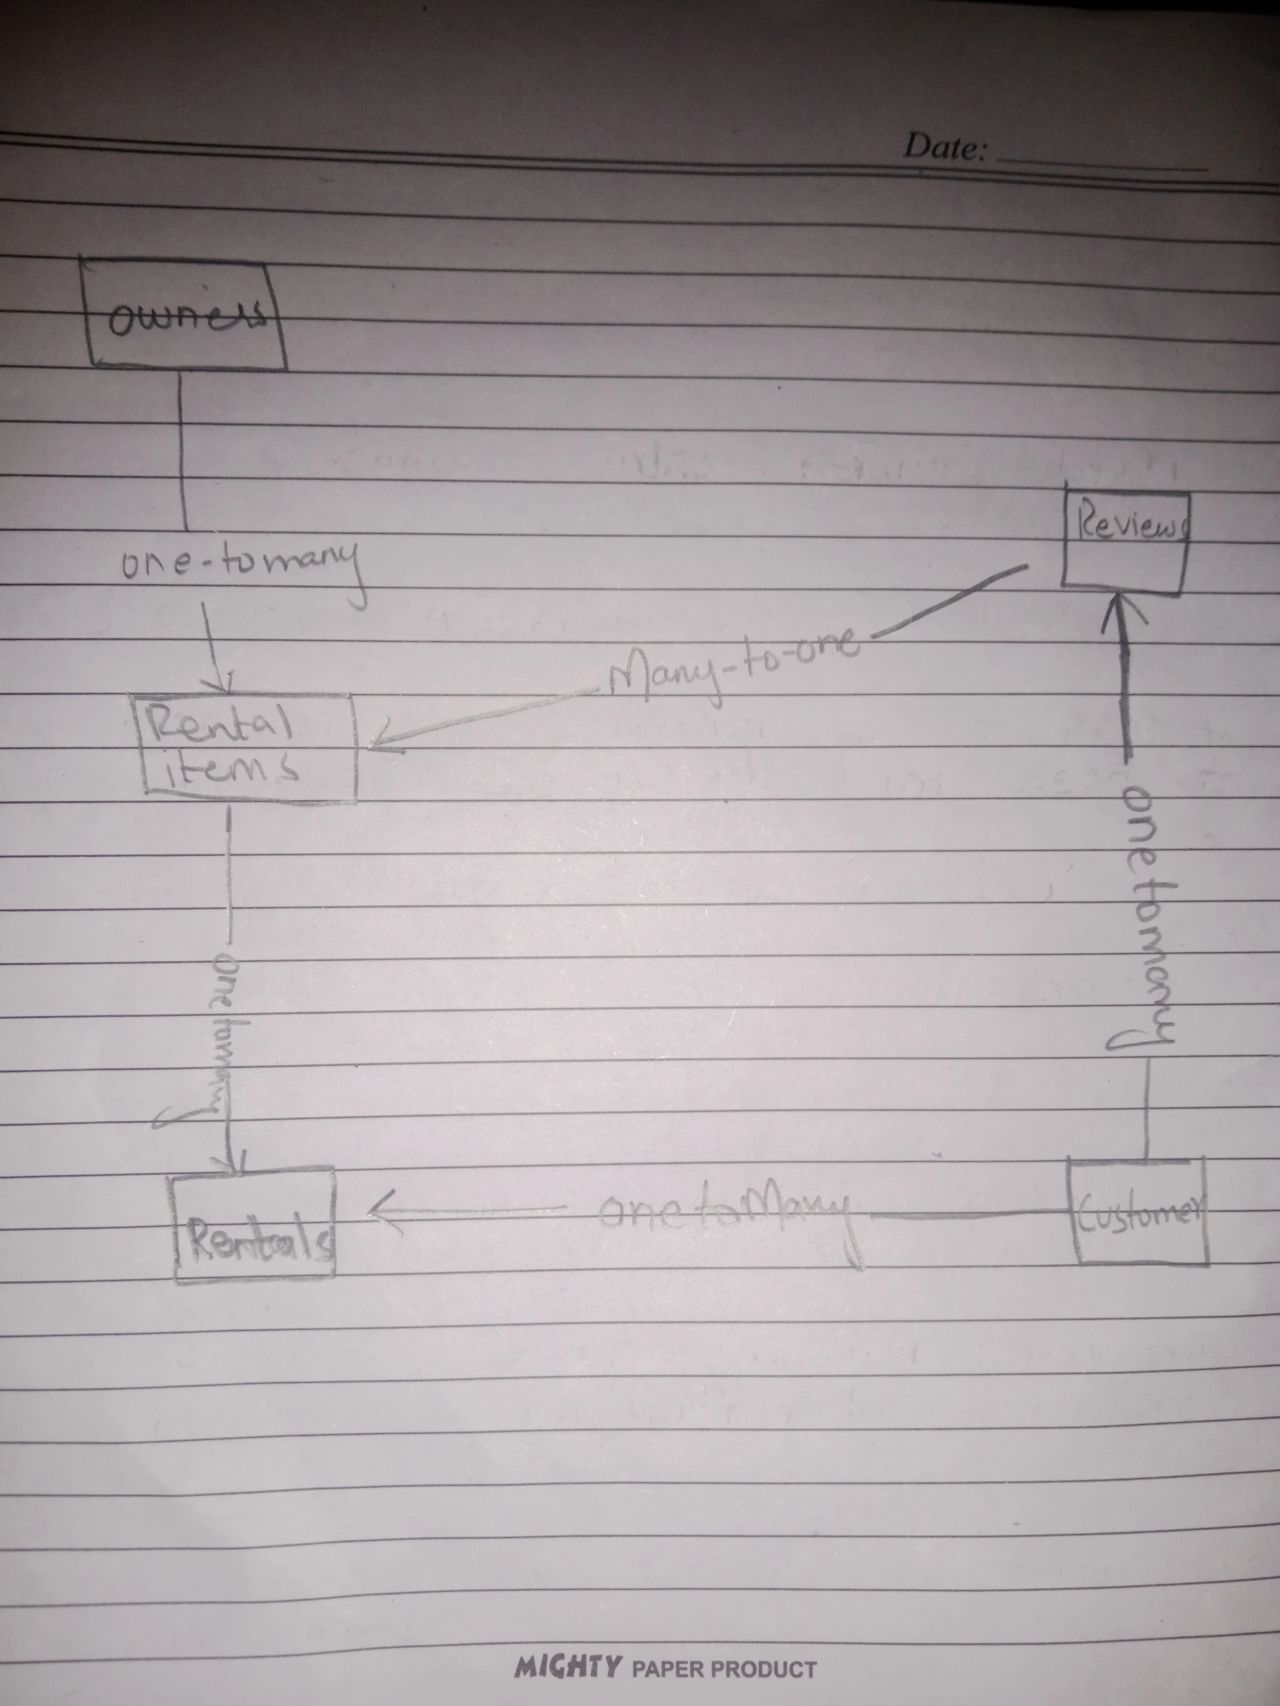 Date:
owners
one-tomany
Reviews
Many-to-one
Rental
items
onetomany
onetomany
Rentals
onetoMany
Customer
MIGHTY PAPER PRODUCT